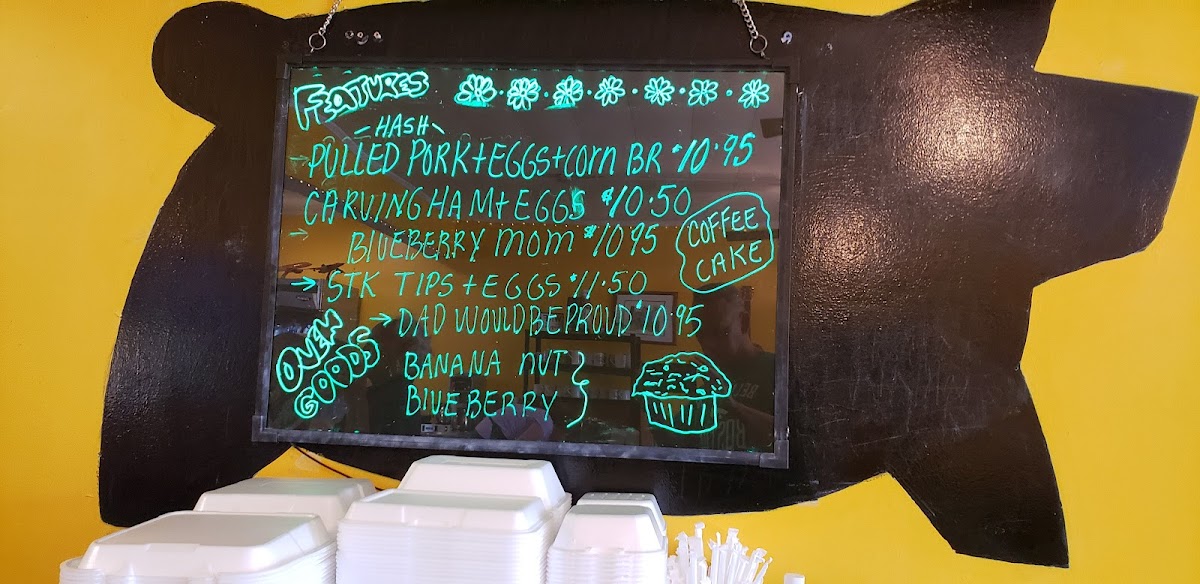 FEATURES
-HASH-
→PULLED PORK+EGGS+CORN BR $10.95
CARVING HAM+EGGS $10.50
→ BLUEBERRY MOM $10.95
→ STK TIPS+EGGS $11.50
→ DAD WOULD BE PROUD $10.95
COFFEE
CAKE
OVEN
GOODS
BANANA NUT
BLUEBERRY